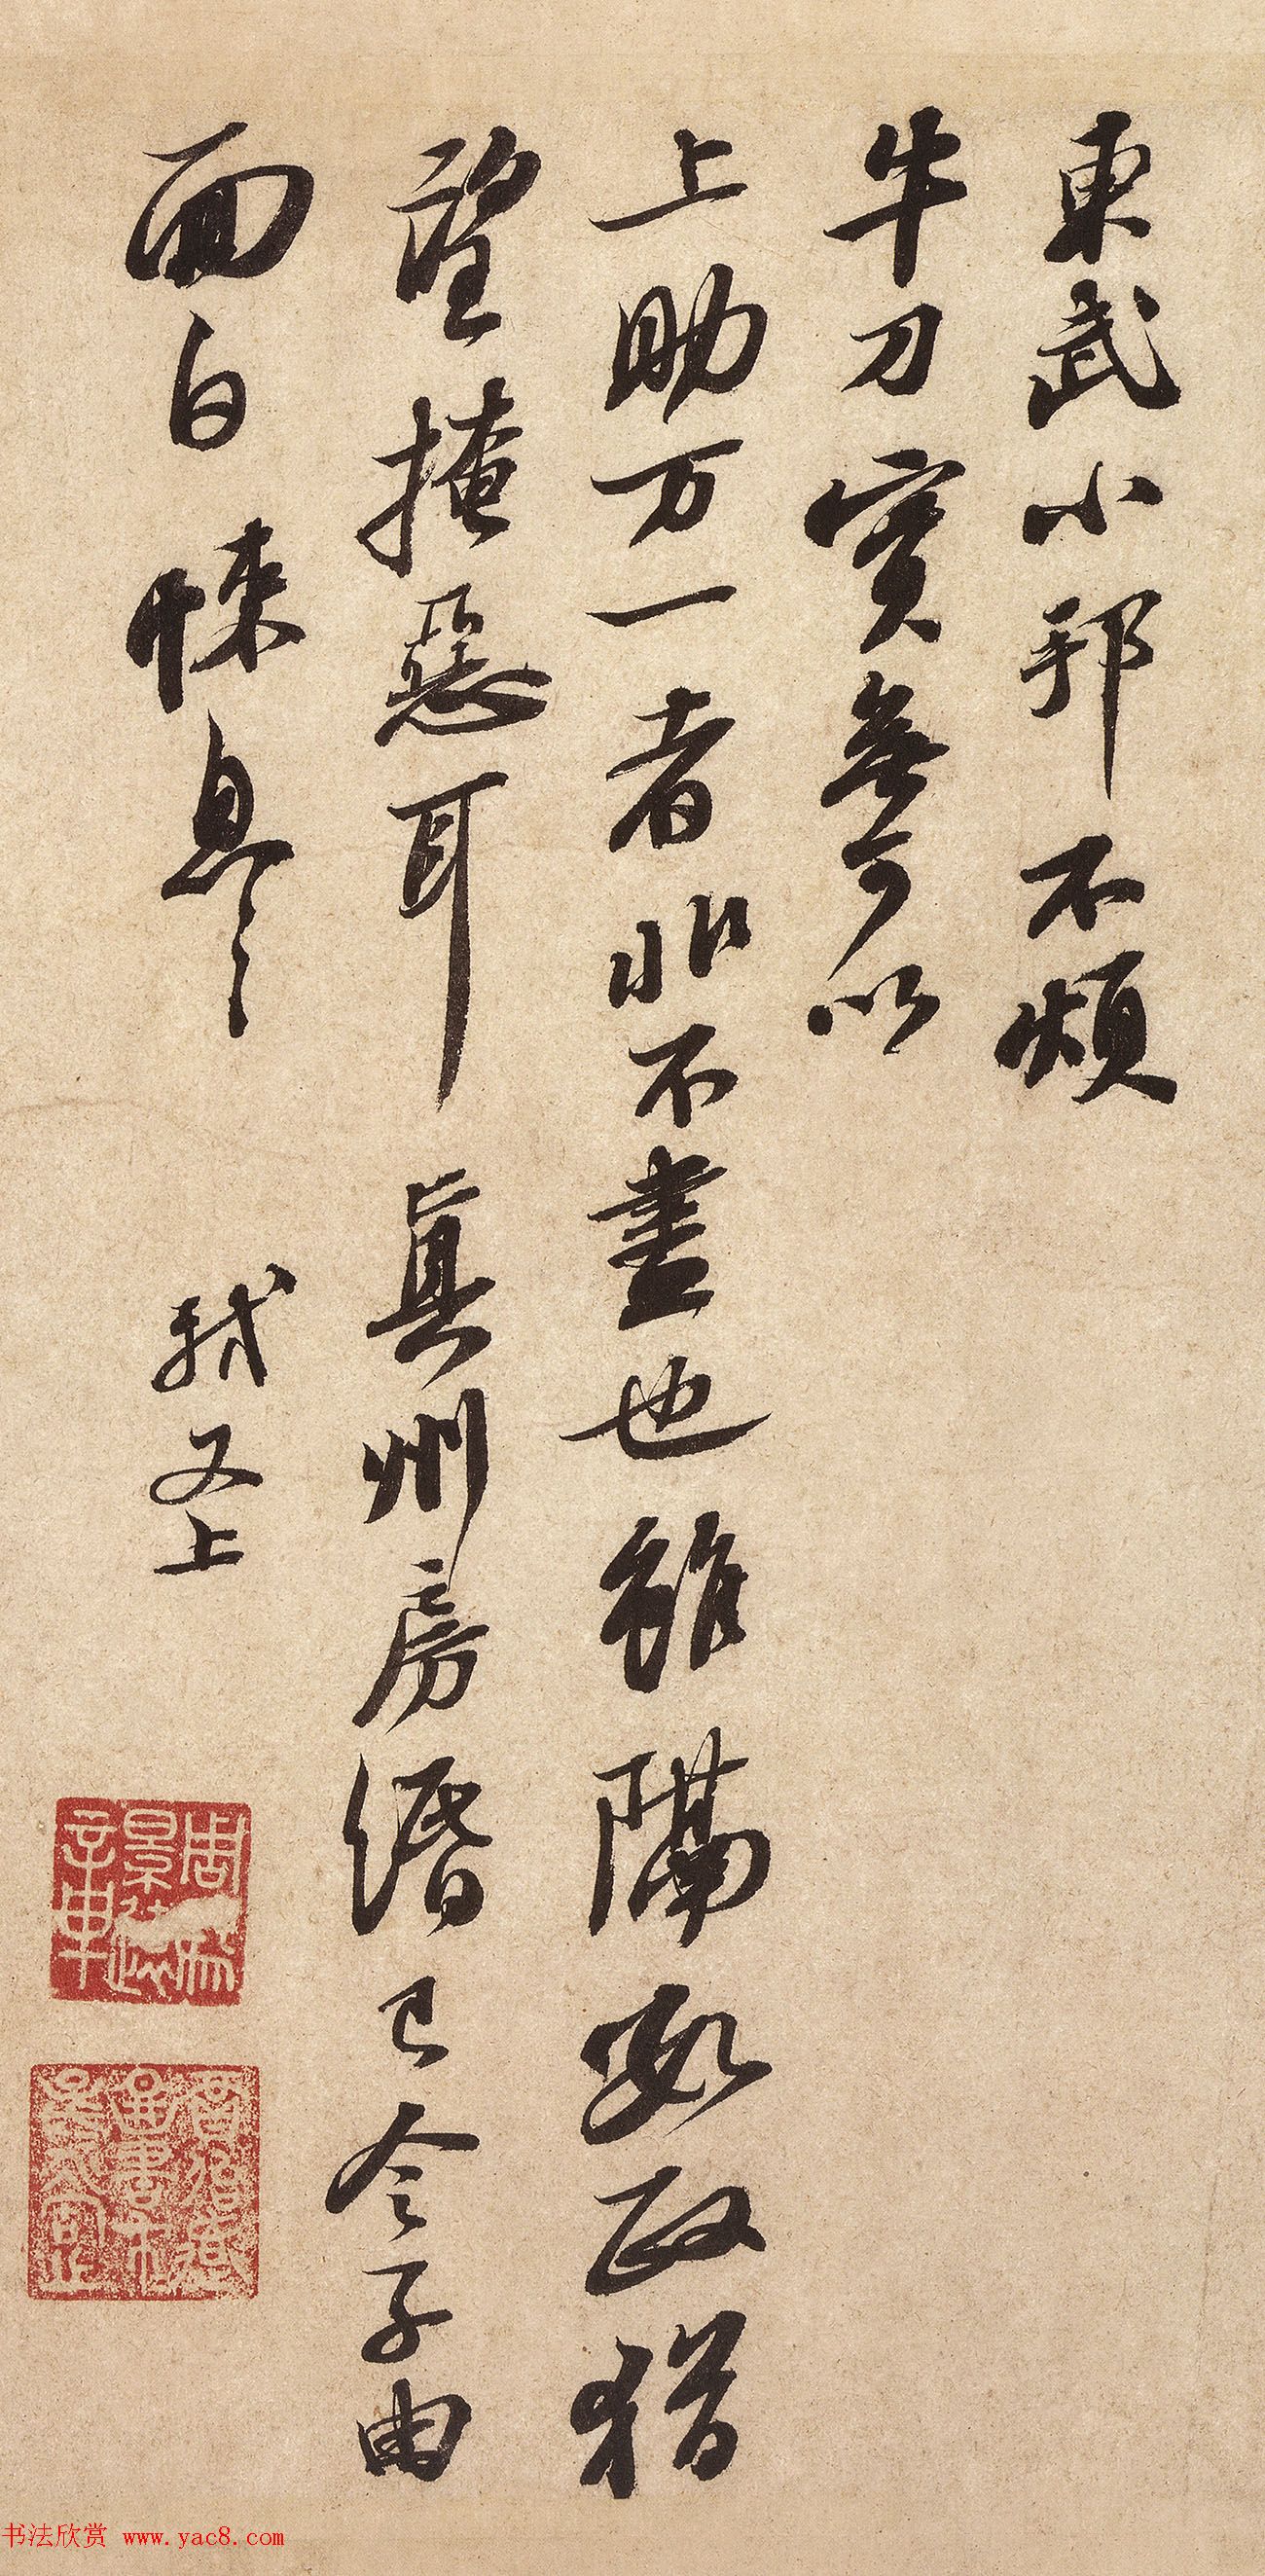 東武小邦不煩
牛刀實無可以
上助万一者非不盡也雖隔數政猶
望掩惡耳真州房緡已令子由
面白悚息〻軾又上
书法欣赏 www.yac8.com